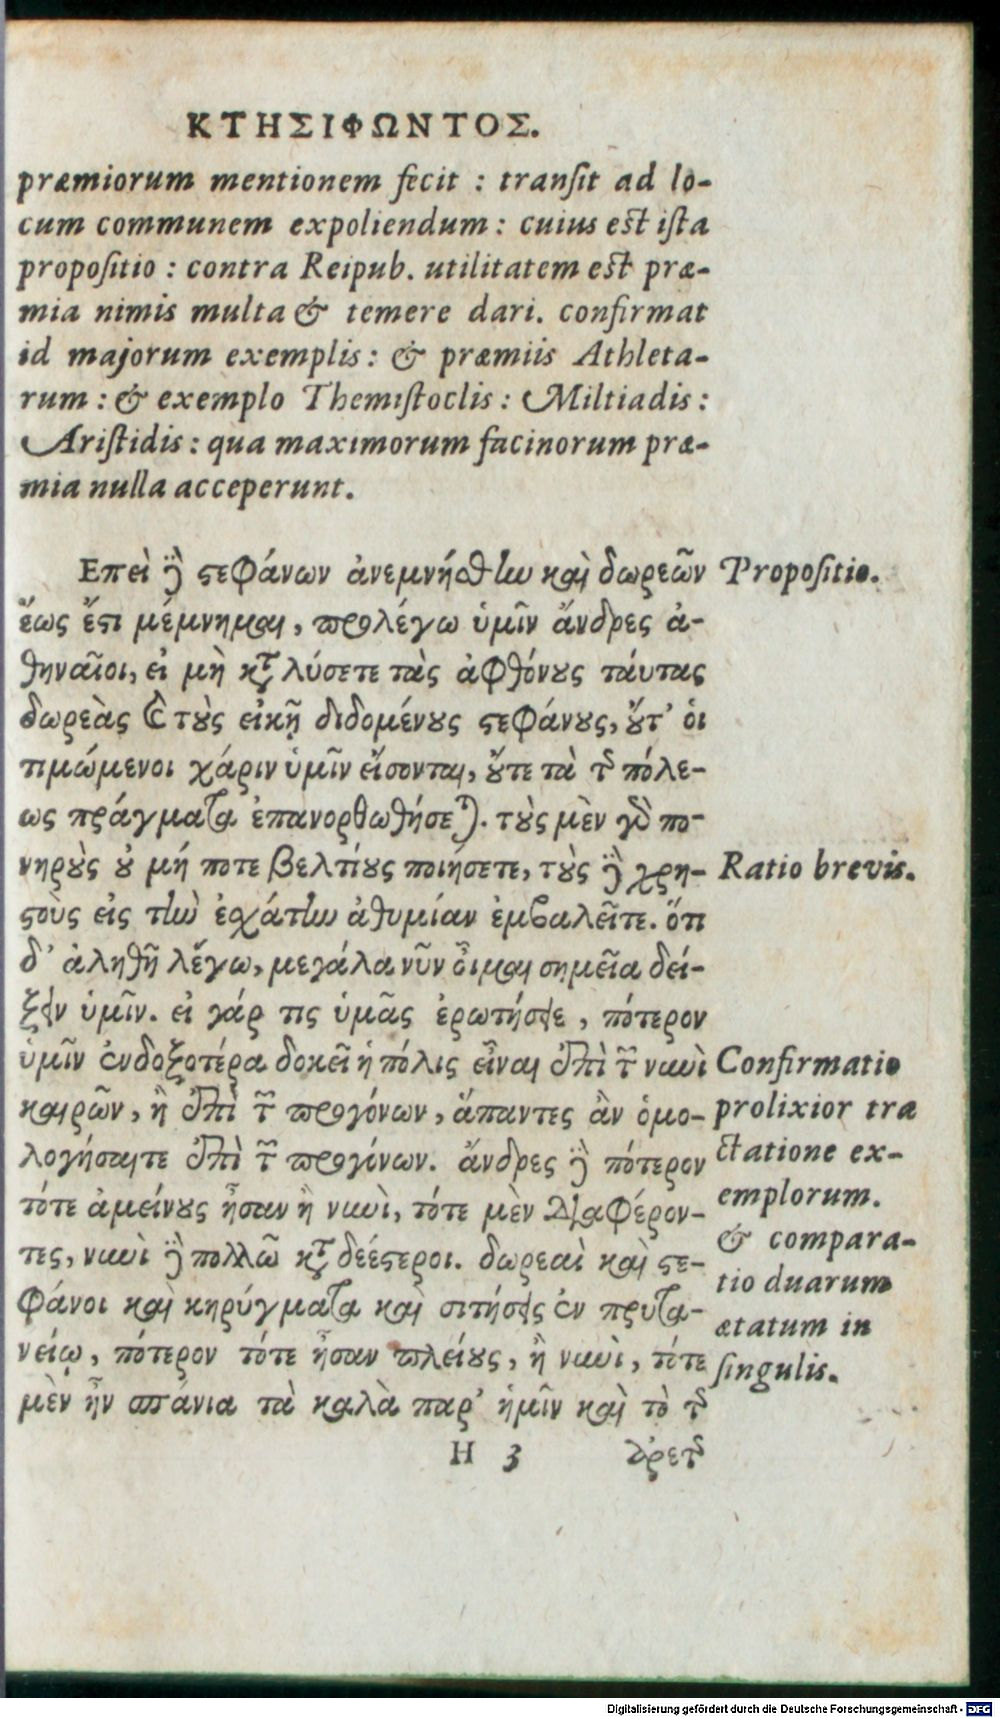 ΚΤΗΣΙΦΩΝΤΟΣ.
præmiorum mentionem fecit : tranſit ad lo-
cum communem expoliendum : cuius est iſta
propoſitio : contra Reipub. utilitatem est præ-
mia nimis multa & temere dari. confirmat
id majorum exemplis : & præmiis Athleta-
rum : & exemplo Themiſtoclis : Miltiadis :
Ariſtidis : qua maximorum facinorum præ-
mia nulla acceperunt.
Επεὶ δὲ ϛεφάνων ἀνεμνήσθην καὶ δωρεῶν
ἕως ἔτι μέμνημαι, προλέγω ὑμῖν ἄνδρες ἀ-
θηναῖοι, εἰ μὴ καταλύσετε τὰς ἀφθόνους τάυτας
δωρεὰς καὶ τοὺς εἰκῇ διδομένους ϛεφάνους, οὔτ’ οἱ
τιμώμενοι χάριν ὑμῖν εἴσονται, οὔτε τὰ τῆς πόλε-
ως πράγματα ἐπανορθωθήσεται. τοὺς μὲν γὰρ πο-
νηροὺς οὐ μή ποτε βελτίους ποιήσετε, τοὺς δὲ χρη-
ϛοὺς εἰς τὴν ἐχάτην ἀθυμίαν ἐμβαλεῖτε. ὅτι
δ’ ἀληθῆ λέγω, μεγάλα νῦν οἶμαι σημεῖα δεί-
ξειν ὑμῖν. εἰ γάρ τις ὑμᾶς ἐρωτήσειε, πότερον
ὑμῖν ἐνδοξοτέρα δοκεῖ ἡ πόλις εἶναι ἐπὶ τῶν νυνὶ
καιρῶν, ἢ ἐπὶ τῶν προγόνων, ἅπαντες ἂν ὁμο-
λογήσαιτε ἐπὶ τῶν προγόνων. ἄνδρες δὲ πότερον
τότε ἀμείνους ἦσαν ἢ νυνὶ, τότε μὲν διαφέρον-
τες, νυνὶ δὲ πολλῶ καταδεέϛεροι. δωρεαὶ καὶ ϛε-
φάνοι καὶ κηρύγματα καὶ σιτήσεις ἐν πρυτα-
νείῳ, πότερον τότε ἦσαν πλείους, ἢ νυνὶ, τότε
μὲν ἦν σπάνια τὰ καλὰ παρ’ ἡμῖν καὶ τὸ τῆς
H 3 ἀρετῆς
Propoſitio.
Ratio brevis.
Confirmatio
prolixior tra
ctatione ex-
emplorum.
& compara-
tio duarum
ætatum in
ſingulis.
Digitalisierung gefördert durch die Deutsche Forschungsgemeinschaft - DFG